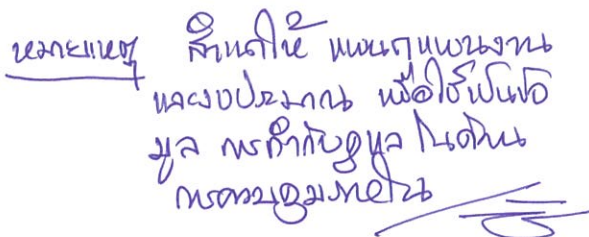 หมายเหตุ สำเนาให้ แผนกแผนงาน
และงบประมาณ เพื่อใช้เป็นข้อ
มูล การกำกับดูแล ในด้าน
การควบคุมภายใน